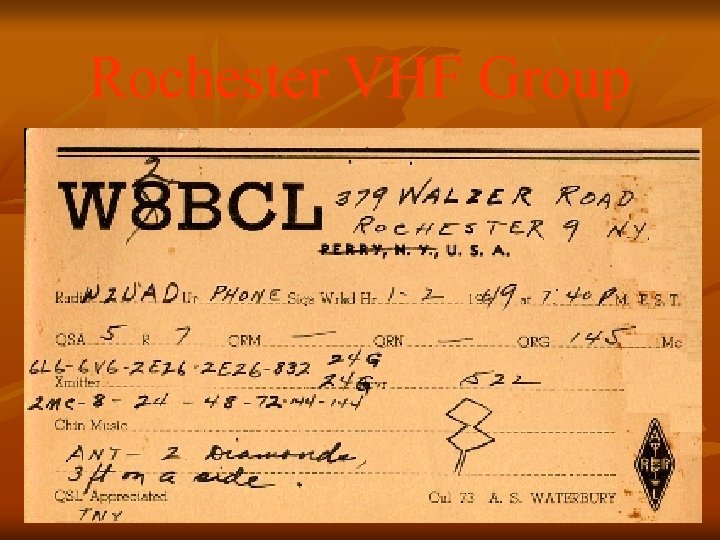 Rochester VHF Group
2
W8BCL 379 WALZER ROAD
ROCHESTER 9 N.Y.
PERRY, N. Y., U. S. A.
Radio W2UAD Ur PHONE Sigs Wrkd Hr 1-2 1949 at 7:40 P M. E.S.T.
QSA 5 R 7 QRM — QRN — QRG 145 Mc
6L6-6V6-2E26-2E26-832 24G
Xmitter 24G 522
2MC-8-24-48-72-144-144
Chin Music
ANT- 2 Diamonds,
3 ft on a side.
QSL Appreciated Cul 73 A. S. WATERBURY
TNX
ARRL